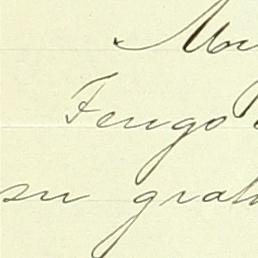 Muy
Tengo
su grat